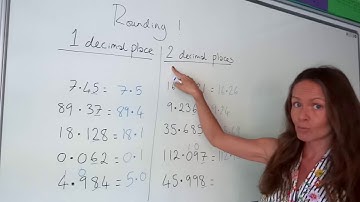 Rounding 1
1 decimal place
2 decimal places
7.45 = 7.5
16.26
89.37 = 89.4
9.236
18.128 = 18.1
35.685
0.062 = 0.1
112.097
4.984 = 5.0
45.998 =